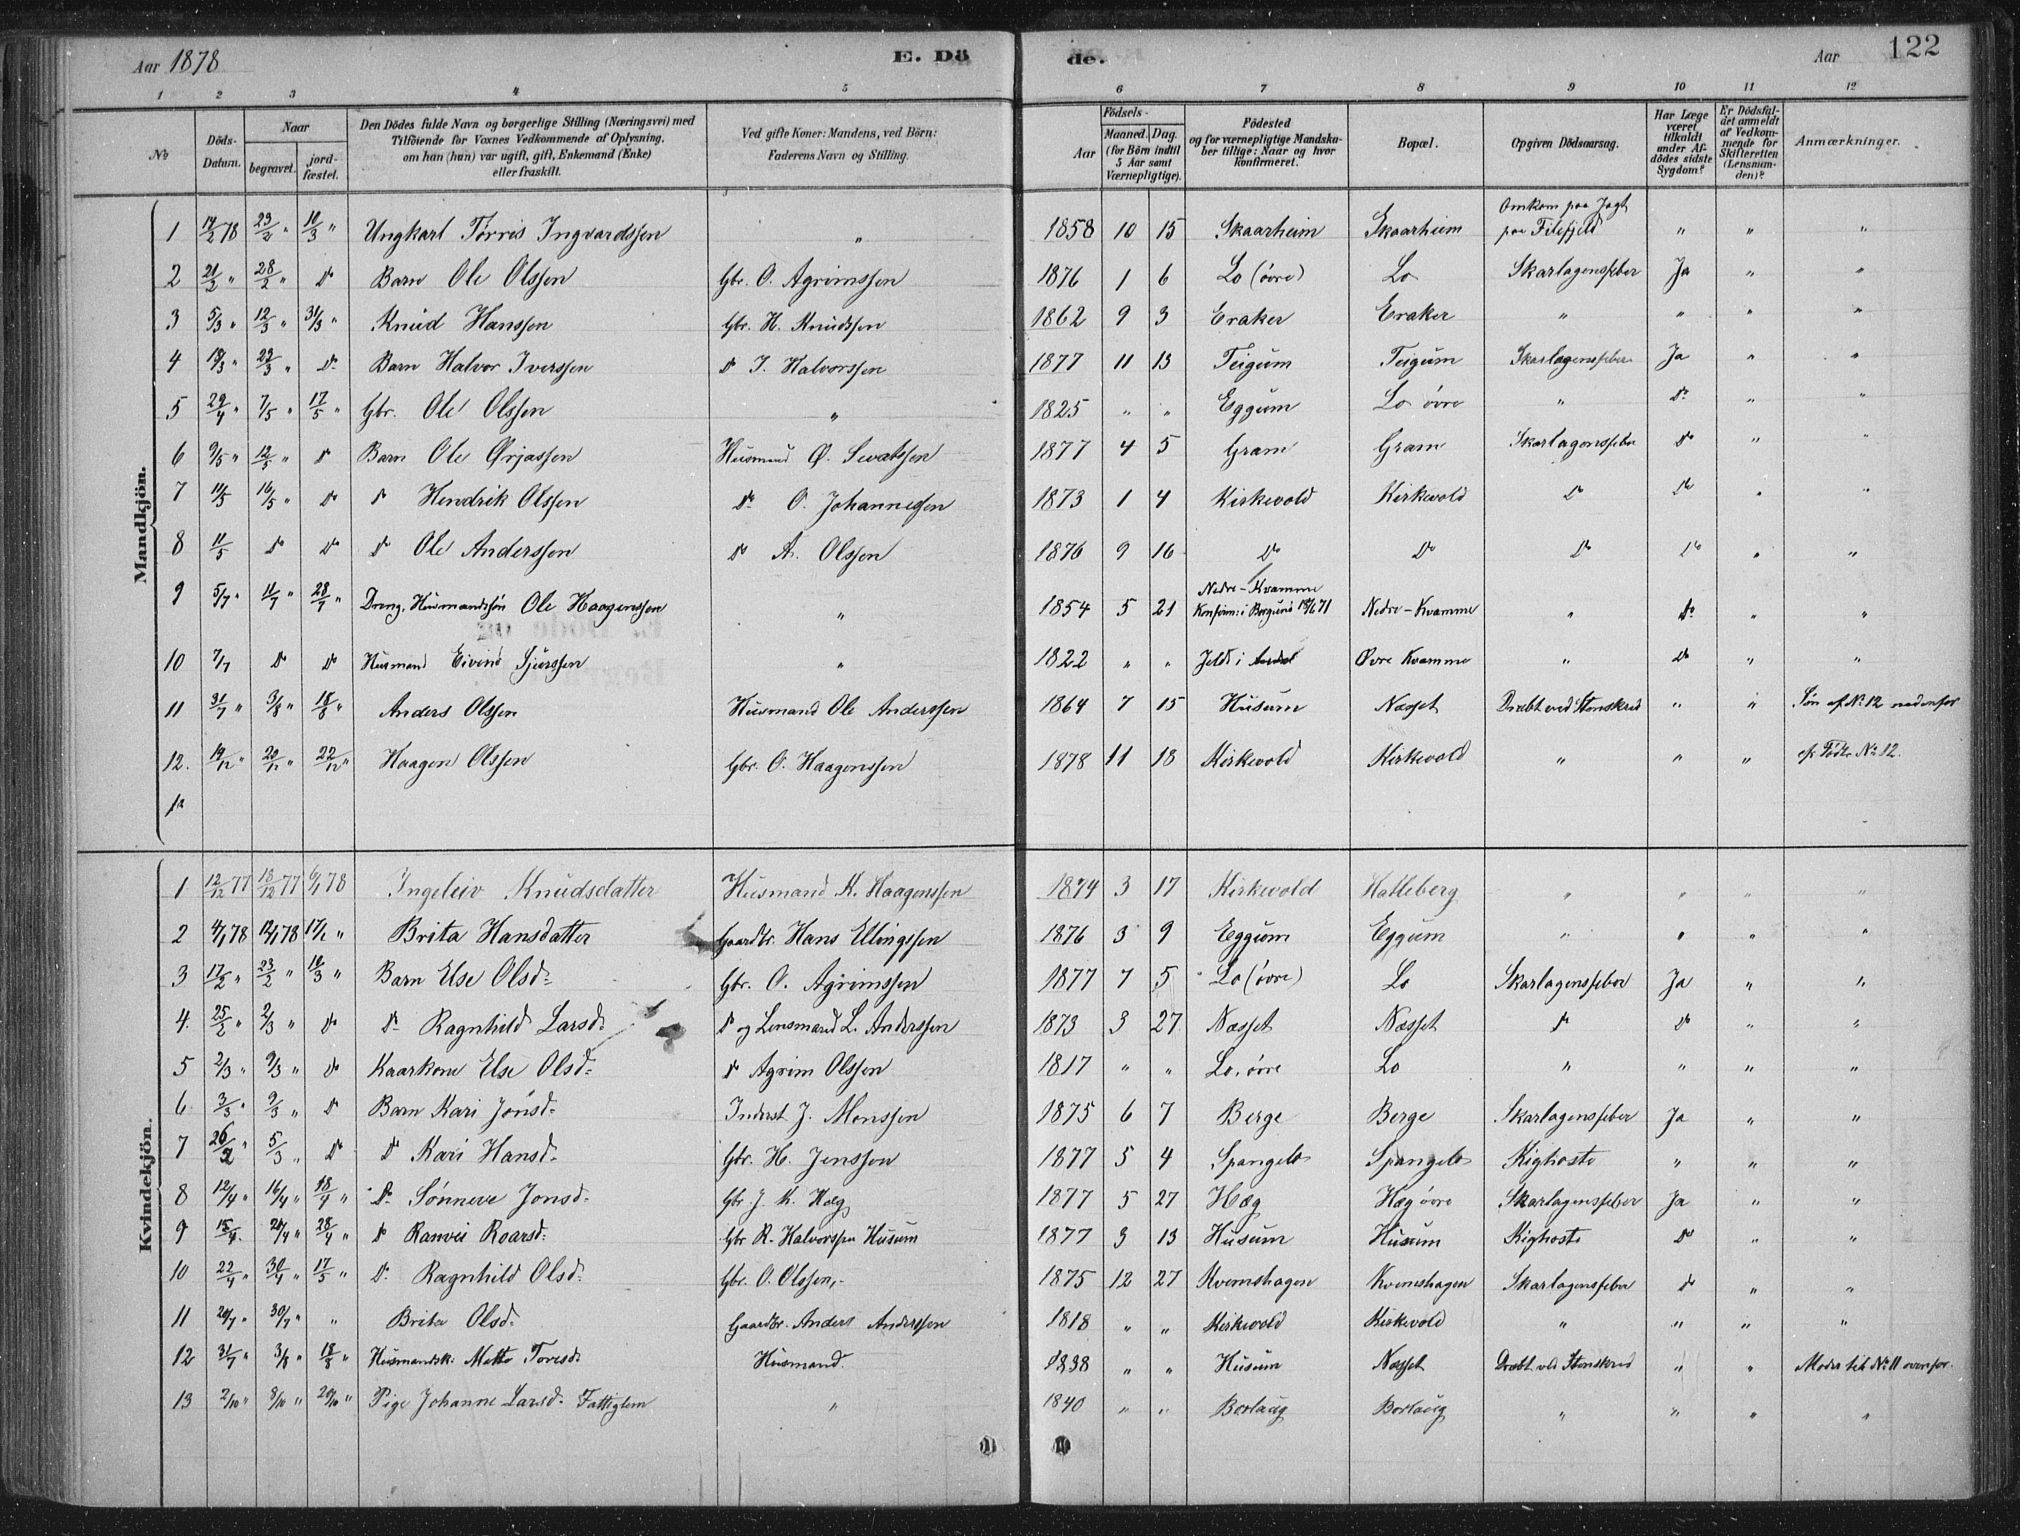 Aar 1878 E. Dö de. Aar 122
1 2 3 4 5 6 7 8 9 10 11 12
No Döds-Datum. Naar begravet. jord-fæstet. Den Dödes fulde Navn og borgerlige Stilling (Næringsvei) med Tilföiende for Voxnes Vedkommende af Oplysning, om han (hun) var ugift, gift, Enkemand (Enke) eller fraskilt. Ved gifte Koner: Mandens, ved Börn: Faderens Navn og Stilling. Aar Födsels- Maaned. Dag. (for Börn indtil 5 Aar samt Værnepligtige). Födested og for værnepligtige Mandskaber tillige: Naar og hvor Konfirmeret. Bopæl. Opgiven Dödsaarsag. Har Læge været tilkaldt under Afdödes sidste Sygdom? Er Dödsfaldet anmeldt af Vedkommende for Skifteretten (Lensmanden)? Anmærkninger.
Mandkjön.
1 78 23/2 " 10/3 " Ungkarl Torris Ingvardssen " 1858 10 15 Skaarheim Skaarheim Omkom paa Jagt paa Filefjeld " " "
2 21/2 " 28/2 " Do Barn Ole Olssen Gbr. O. Agrimssen 1876 1 6 Lo (øvre) Lo Skarlagensfeber Ja " "
3 5/3 " 12/3 " 31/3 " Knud Hanssen Gbr. H. Knudssen 1862 9 3 Eraker Eraker " " " "
4 18/3 " 23/3 " Do Barn Halvor Iverssen Do I. Halvorssen 1877 11 13 Teigum Teigum Skarlagensfeber Ja " "
5 29/4 " 7/5 " 17/5 " Gbr. Ole Olssen " 1825 " " Eggum Lo øvre " Do " "
6 9/5 " 12/5 " Do Barn Ole Ørjassen Husmand Ø. Sevatssen 1877 4 5 Gram Gram Skarlagensfeber Do " "
7 11/5 16/5 " Do Do Hendrik Olssen Do O. Johannessen 1873 1 4 Kirkevold Kirkevold Do Do " "
8 11/5 Do Do Do Ole Anderssen Do A. Olssen 1876 9 16 Do Do Do Do " "
9 5/7 " 11/7 " 28/7 " Dreng, Husmandssøn Ole Haagenssen " 1854 5 21 Nedre-Kvamme Konfirm: i Borgund 18/6 71 Nedre-Kvamme " Do " "
10 7/7 Do Do Husmand Eivind Sjurssen " 1822 " " Øvre Kvamme " Do " "
11 31/7 " 3/8 " 18/8 " Anders Olssen Husmand Ole Anderssen 1864 7 15 Husum Næsset Dræbt ved Stenskred " " Søn af No 12 nedenfor
12. 19/12 " 20/12 " 22/12 " Haagen Olssen Gbr. O. Haagenssen 1878 11 18 Kirkevold Kirkevold " " " cfr Fødte No 12.
Kvindekjön.
1 12/12 77 18/12 77 6/1 78 Ingeleiv Knudsdatter Husmand K. Haagenssen 1874 3 17 Kirkevold Hatleberg " " " "
2 4/1 78 12/1 78 17/2 " Brita Hansdatter Gaardbr. Hans Ellingssen 1876 3 9 Eggum Eggum " " " "
3 17/2 " 23/2 " 10/3 " Barn Else Olsd: Gbr. O. Agrimssen 1877 7 5 Lo (øvre) Lo Skarlagensfeber Ja " "
4. 25/2 " 2/3 " Do Do Ragnhild Larsd: Do og Lensmand L. Anderssen 1873 3 27 Næsset Næsset Do Do " "
5 2/3 " 9/3 " Do Kaarkone Else Olsd: Do Agrim Olssen 1817 " " Lo, øvre Lo " " " "
6 3/3 " 9/3 " Do Barn Kari Jonsd: Inderst J. Monssen 1875 6 7 Berge Berge Skarlagensfeber Ja " "
7 26/2 " 5/3 " Do Do Kari Hansd: Gbr. H. Jenssen 1877 5 4 Spangelo Spangelo Kighoste " " "
8 12/4 " 16/4 " 18/4 " Do Sønneve Jonsd: Gbr J. K. Hæg 1877 5 27 Hæg Hæg øvre Skarlagensfeber Ja " "
9 15/4 20/4 " 28/4 " Do Ranvei Roarsd: Gbr R. Halvorssen Husum 1877 3 13 Husum Husum Kighoste Do " "
10 22/4 " 30/4 " 17/5 " Do Ragnhild Olsd: Gbr. O. Olssen 1875 12 27 Kvemshagen Kvemshagen Skarlagensfeber Do " "
11 20/7 " 30/7 " " Brita Olsd: Gaardbr. Anders Anderssen 1818 " " Kirkevold Kirkevold " " " "
12 31/7 " 3/8 " 18/8 " Husmandsk: Mette Toresd: Husmand 1838 " " Husum Næsset Dræbt ved Stenskred " " Moder til No 11 ovenfor.
13 2/10 " 8/10 " 20/10 " Pige Johanne Larsd: Fattiglem " 1840 " " Borlaug Borlaug " " " "